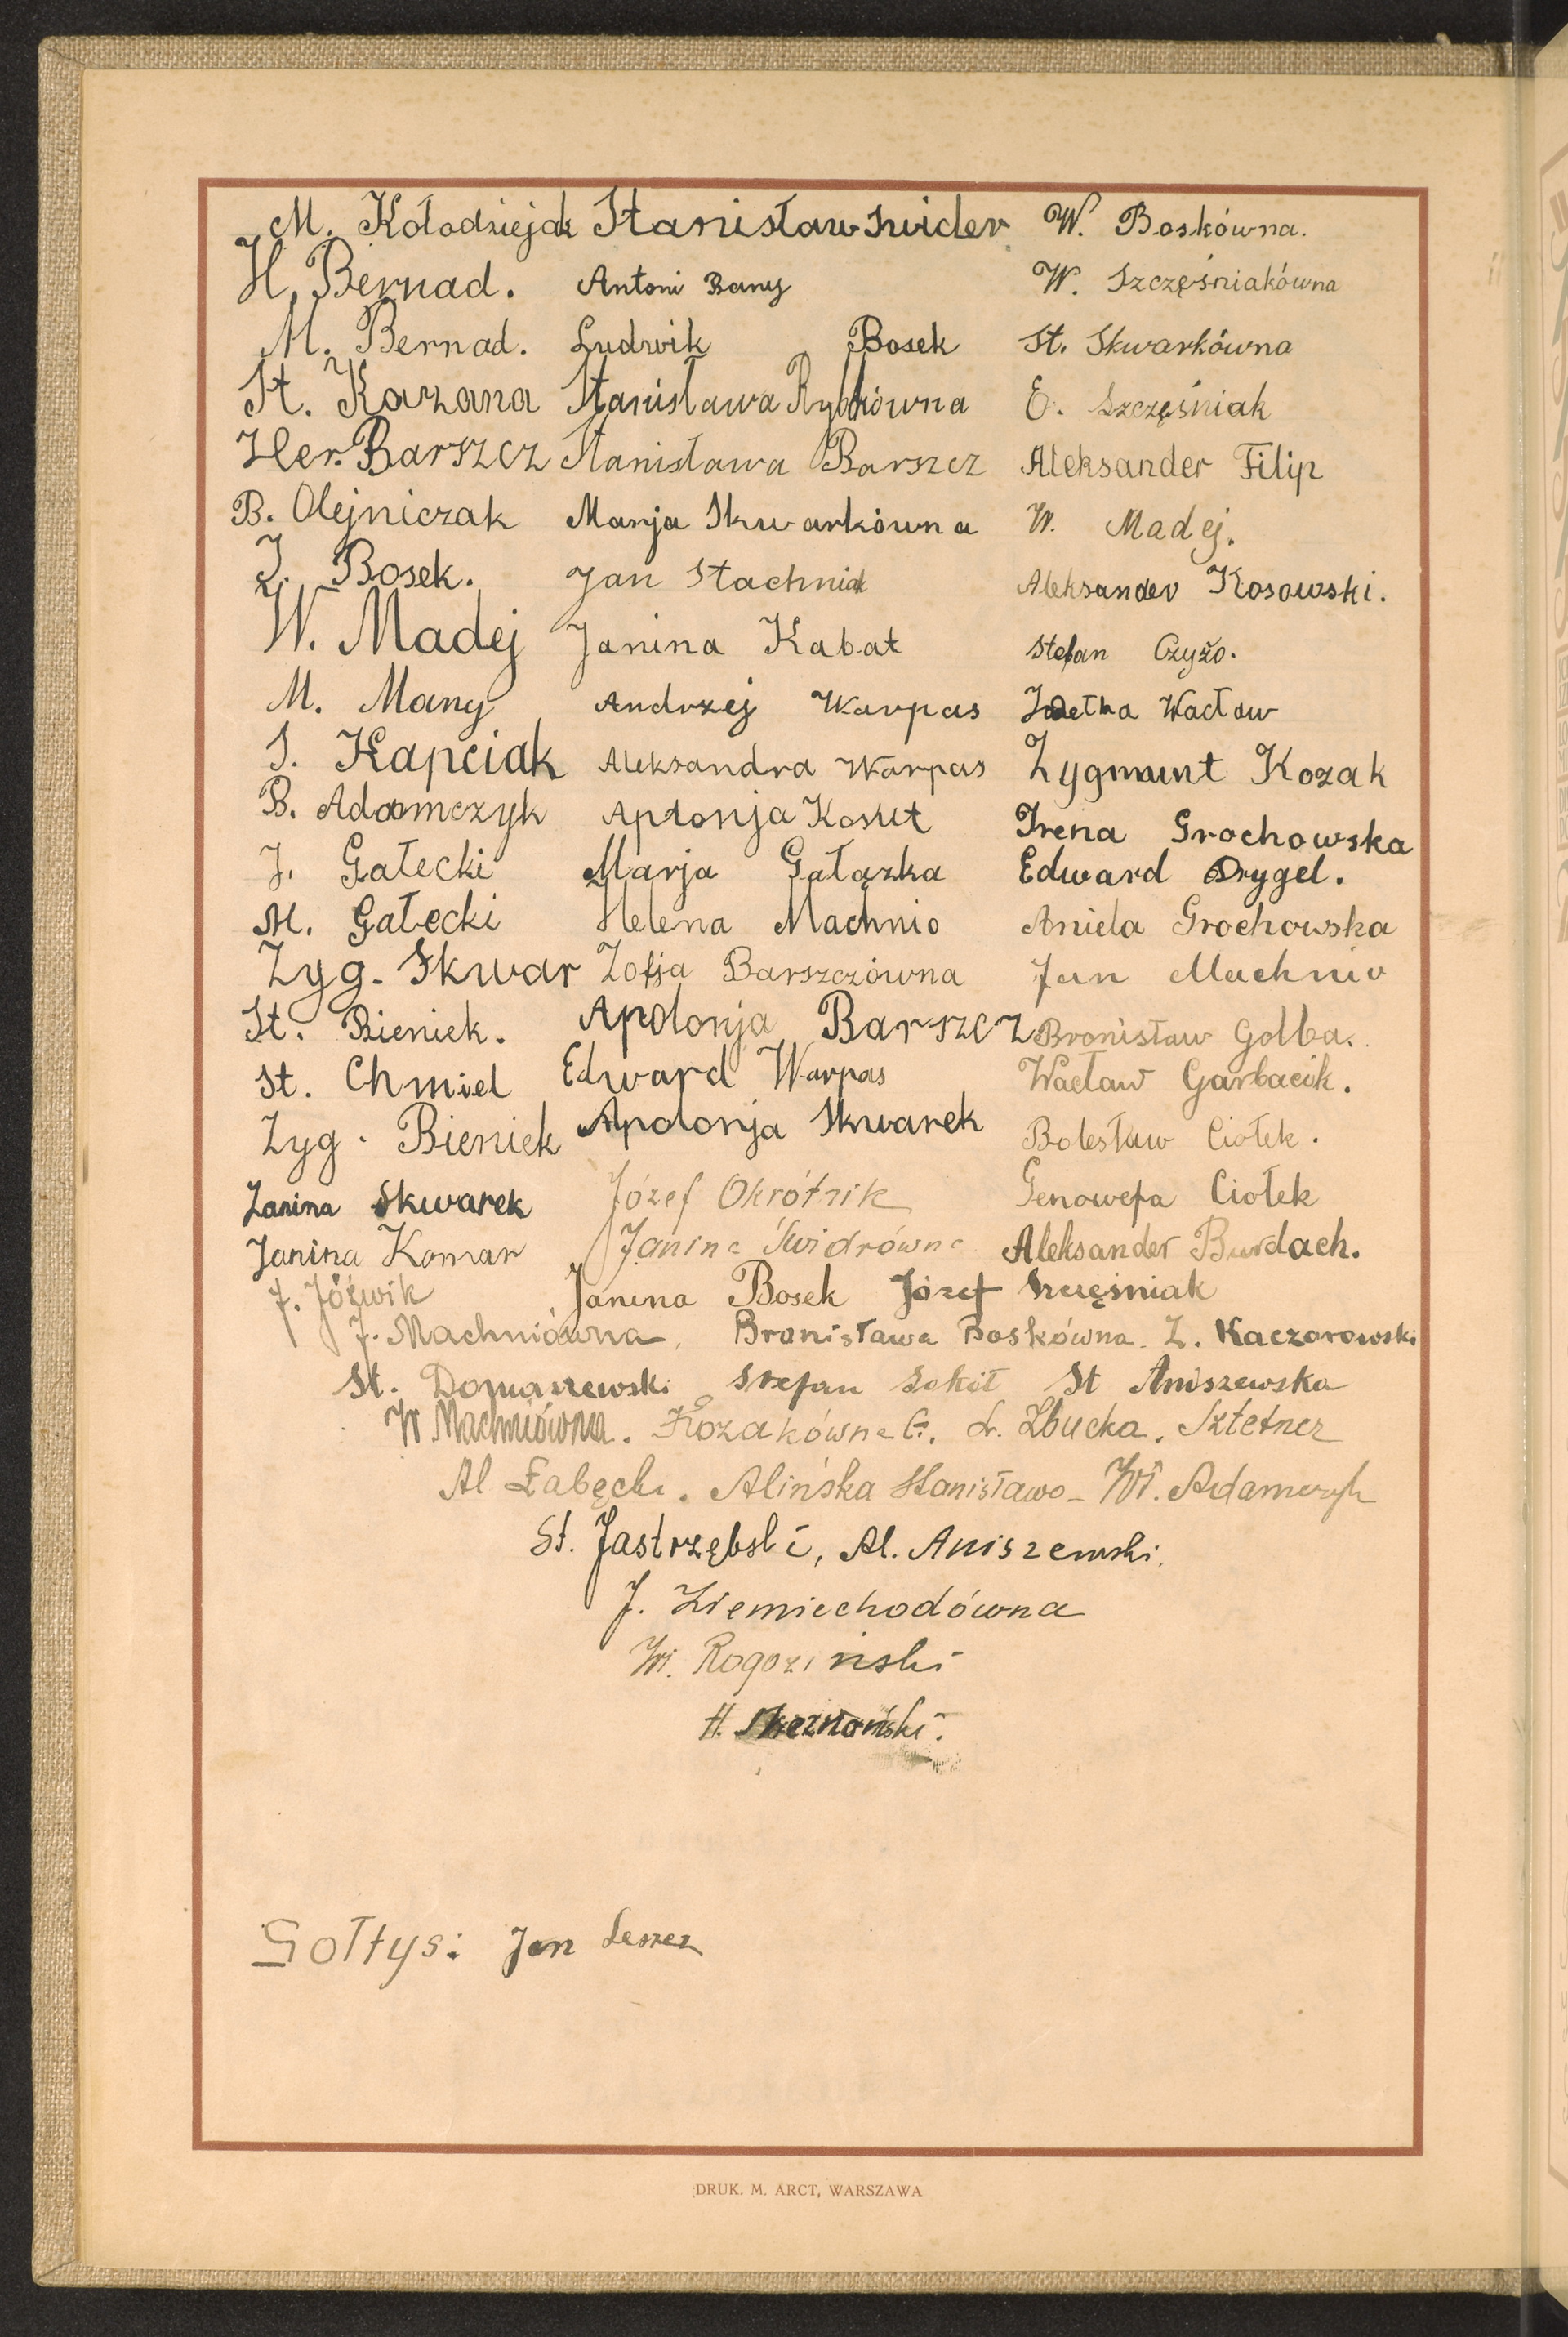 M. Kołodziejak Stanisław Swider W. Boskówna.
H. Bernad. Antoni Bany W. Szczęśniakówna
M. Bernad. Ludwik Bosek St. Skwarkówna
St. Kazana Stanisława Rybkówna E. Szczęśniak
Her. Barszcz Stanisława Barszcz Aleksander Filip
B. Olejniczak Marja Skwarkówna W. Madej.
J. Bosek. Jan Stachniak Aleksander Kosowski.
W. Madej Janina Kabat Stefan Czyżo.
M. Many Andrzej Warpas Wacław
S. Kapciak Aleksandra Warpas Zygmunt Kozak
B. Adamczyk Aplonja Irena Grochowska
J. Gałecki Marja Gałązka Edward Drygel.
M. Gałecki Helena Machnio Aniela Grochowska
Zyg. Skwar Zofja Barszczówna Jan Machnio
St. Bieniek. Apolonja Barszcz Bronisław Golba.
St. Chmiel Edward Warpas Wacław Garbacik.
Zyg. Bieniek Apolonja Skwarek Bolesław Ciołek.
Janina Skwarek Józef Okrótnik Genowefa Ciołek
Janina Komar Janina Świdrówna Aleksander Burdach.
J. Jóźwik Janina Bosek Józef Szczęśniak
J. Machniówna, Bronisława Boskówna. Z. Kaczorowski
St. Domaszewski Stefan Sokół St Aniszewska
W Machniówna. Kozakówna G. L. Zbucka. Sztetner
Al Łabęcki. Alińska Stanisława - Wł. Adamczyk
St. Jastrzębski, Al. Aniszewski.
J. Niemiechodówna
Wł. Rogoziński
H.
Sołtys: Jan Leszcz
DRUK. M. ARCT, WARSZAWA